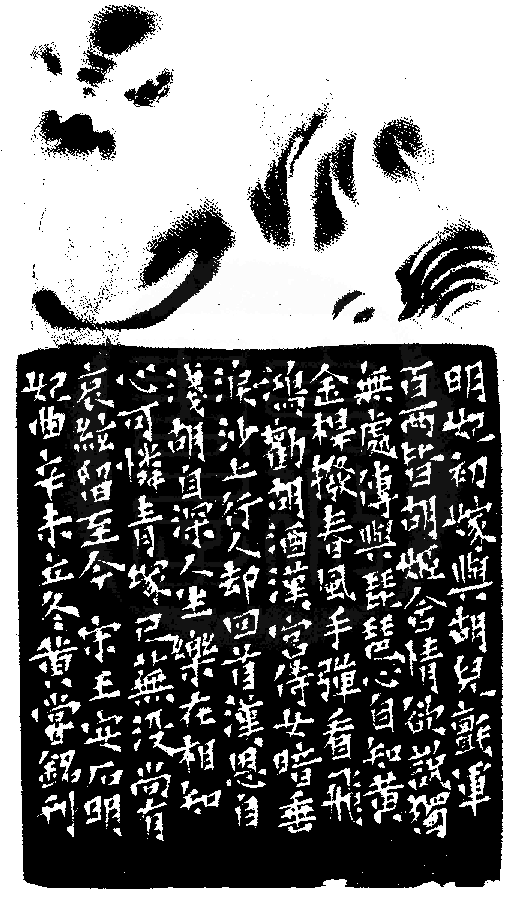 明妃初嫁與胡兒氈車
百兩皆胡姬含情欲說獨
無處傳與琵琶心自知黃
金捍撥春風手彈看飛
鴻勸胡酒漢宮侍女暗垂
淚沙上行人却回首漢恩自
淺胡自深人生樂在相知
心可憐青塚已蕪沒尚有
哀絃留至今 宋王安石明
妃曲辛未立冬黃嘗銘刊